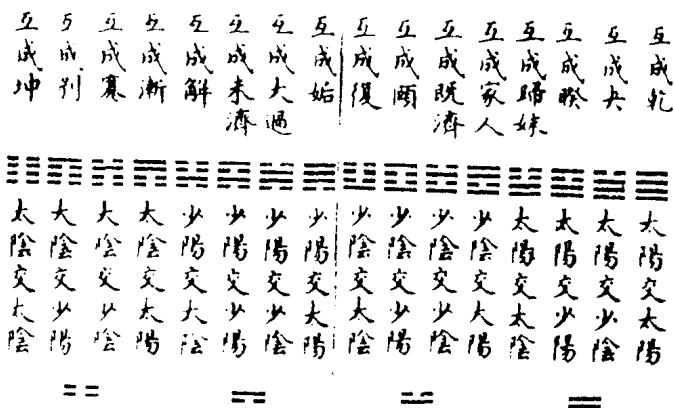 互成乾
互成夬
互成睽
互成歸妹
互成家人
互成既濟
互成頤
互成復
互成姤
互成大過
互成未濟
互成解
互成漸
互成蹇
互成剥
互成坤
太陽交太陽
太陽交少陰
太陽交少陽
太陽交太陰
少陰交太陽
少陰交少陰
少陰交少陽
少陰交太陰
少陽交太陽
少陽交少陰
少陽交少陽
少陽交太陰
太陰交太陽
大陰交少陰
大陰交少陽
太陰交太陰